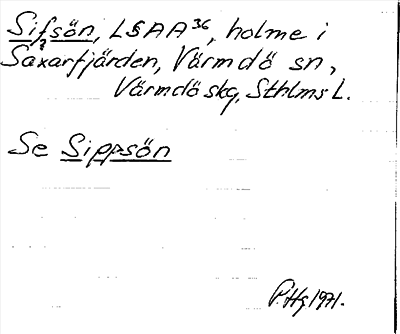 Sifsön, LSAA36, holme i
Saxarfjärden, Värmdö sn,
Värmdö skg, Sthlms L.
Se Sippsön
P.Hg.1971.